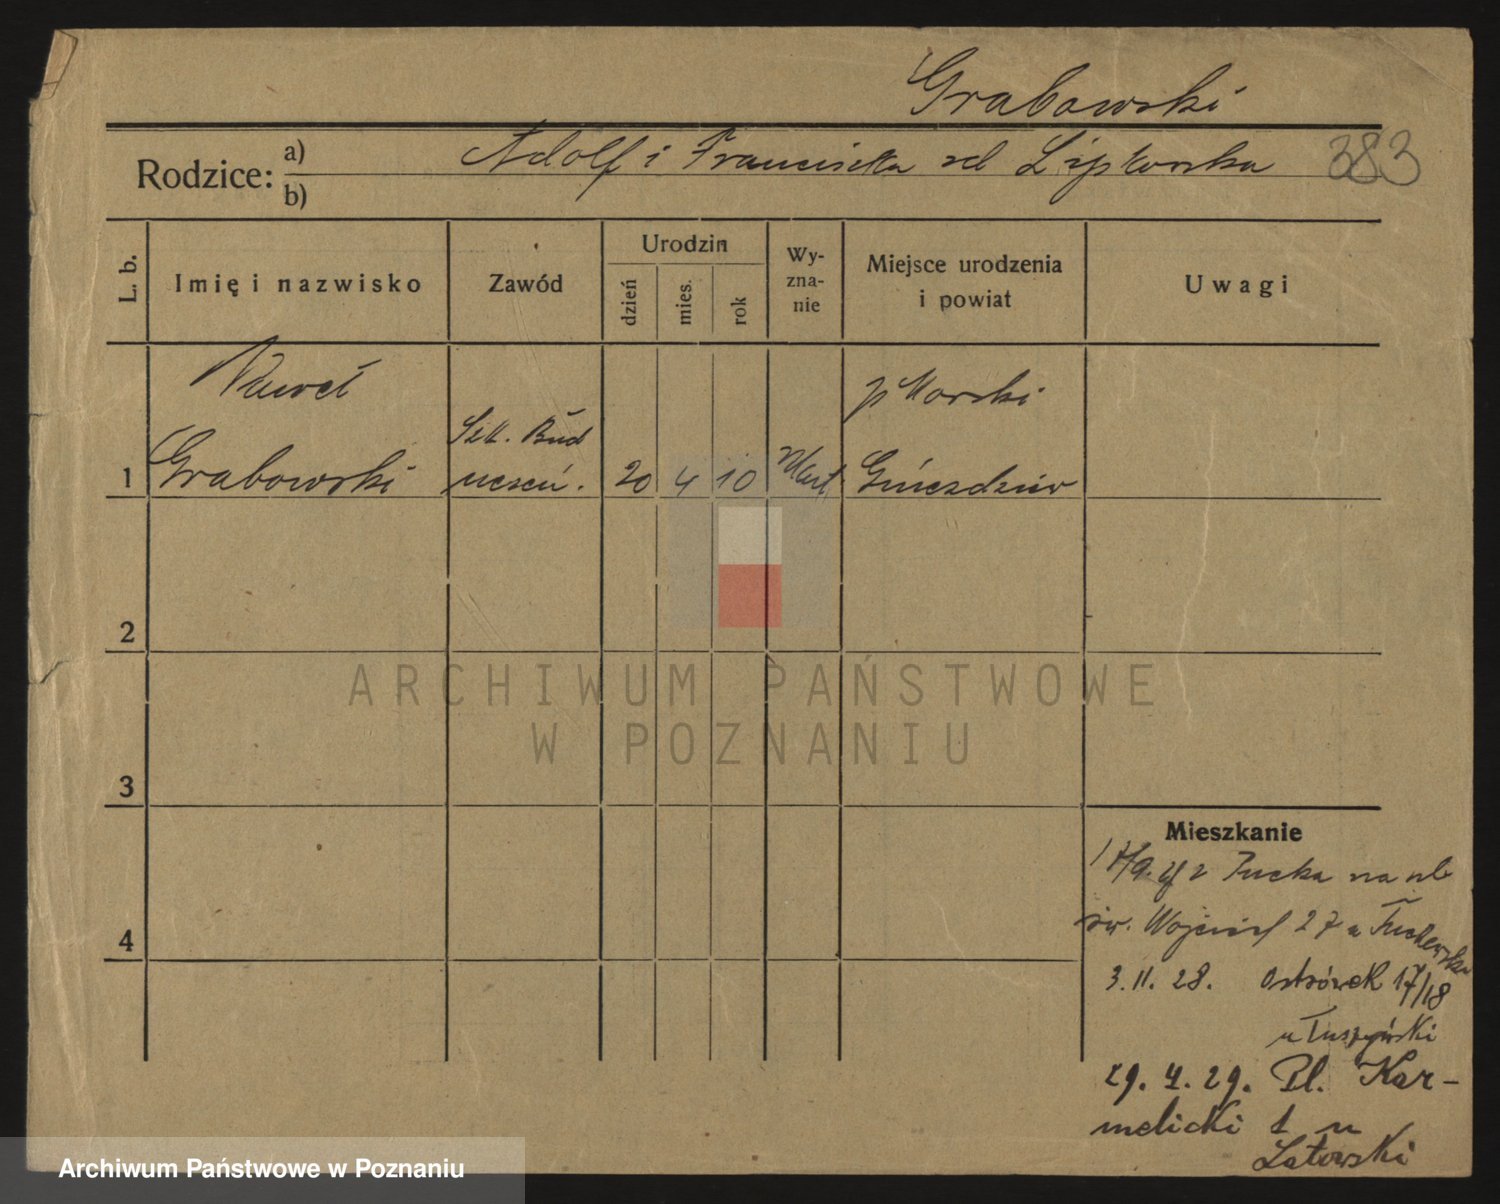 Grabowski
Rodzice: a) Adolf i Franciszka zd Lipkowska 383
b)
L. b.
Imię i nazwisko
Zawód
Urodzin
dzień
mies.
rok
Wy-
zna-
nie
Miejsce urodzenia
i powiat
Uwagi
Paweł
Grabowski
1
Bud
uczeń.
20
4
10
p Morski
2
3
4
Mieszkanie
z Pucka na ul
św. Wojciech 27 u
3. 11. 28. Ostrówek 17/18
u Tuszyński
29. 4. 29. Pl. Kar-
melicki 1 u
Latowski
ARCHIWUM PAŃSTWOWE
W POZNANIU
Archiwum Państwowe w Poznaniu